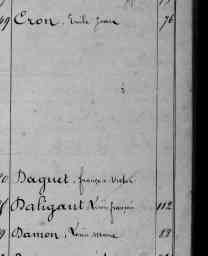 49 Cron, Emile Jean 76
Daguet, françois Victor
Baligaut, Louis françois 112
9 Damon, Louis Marie 88